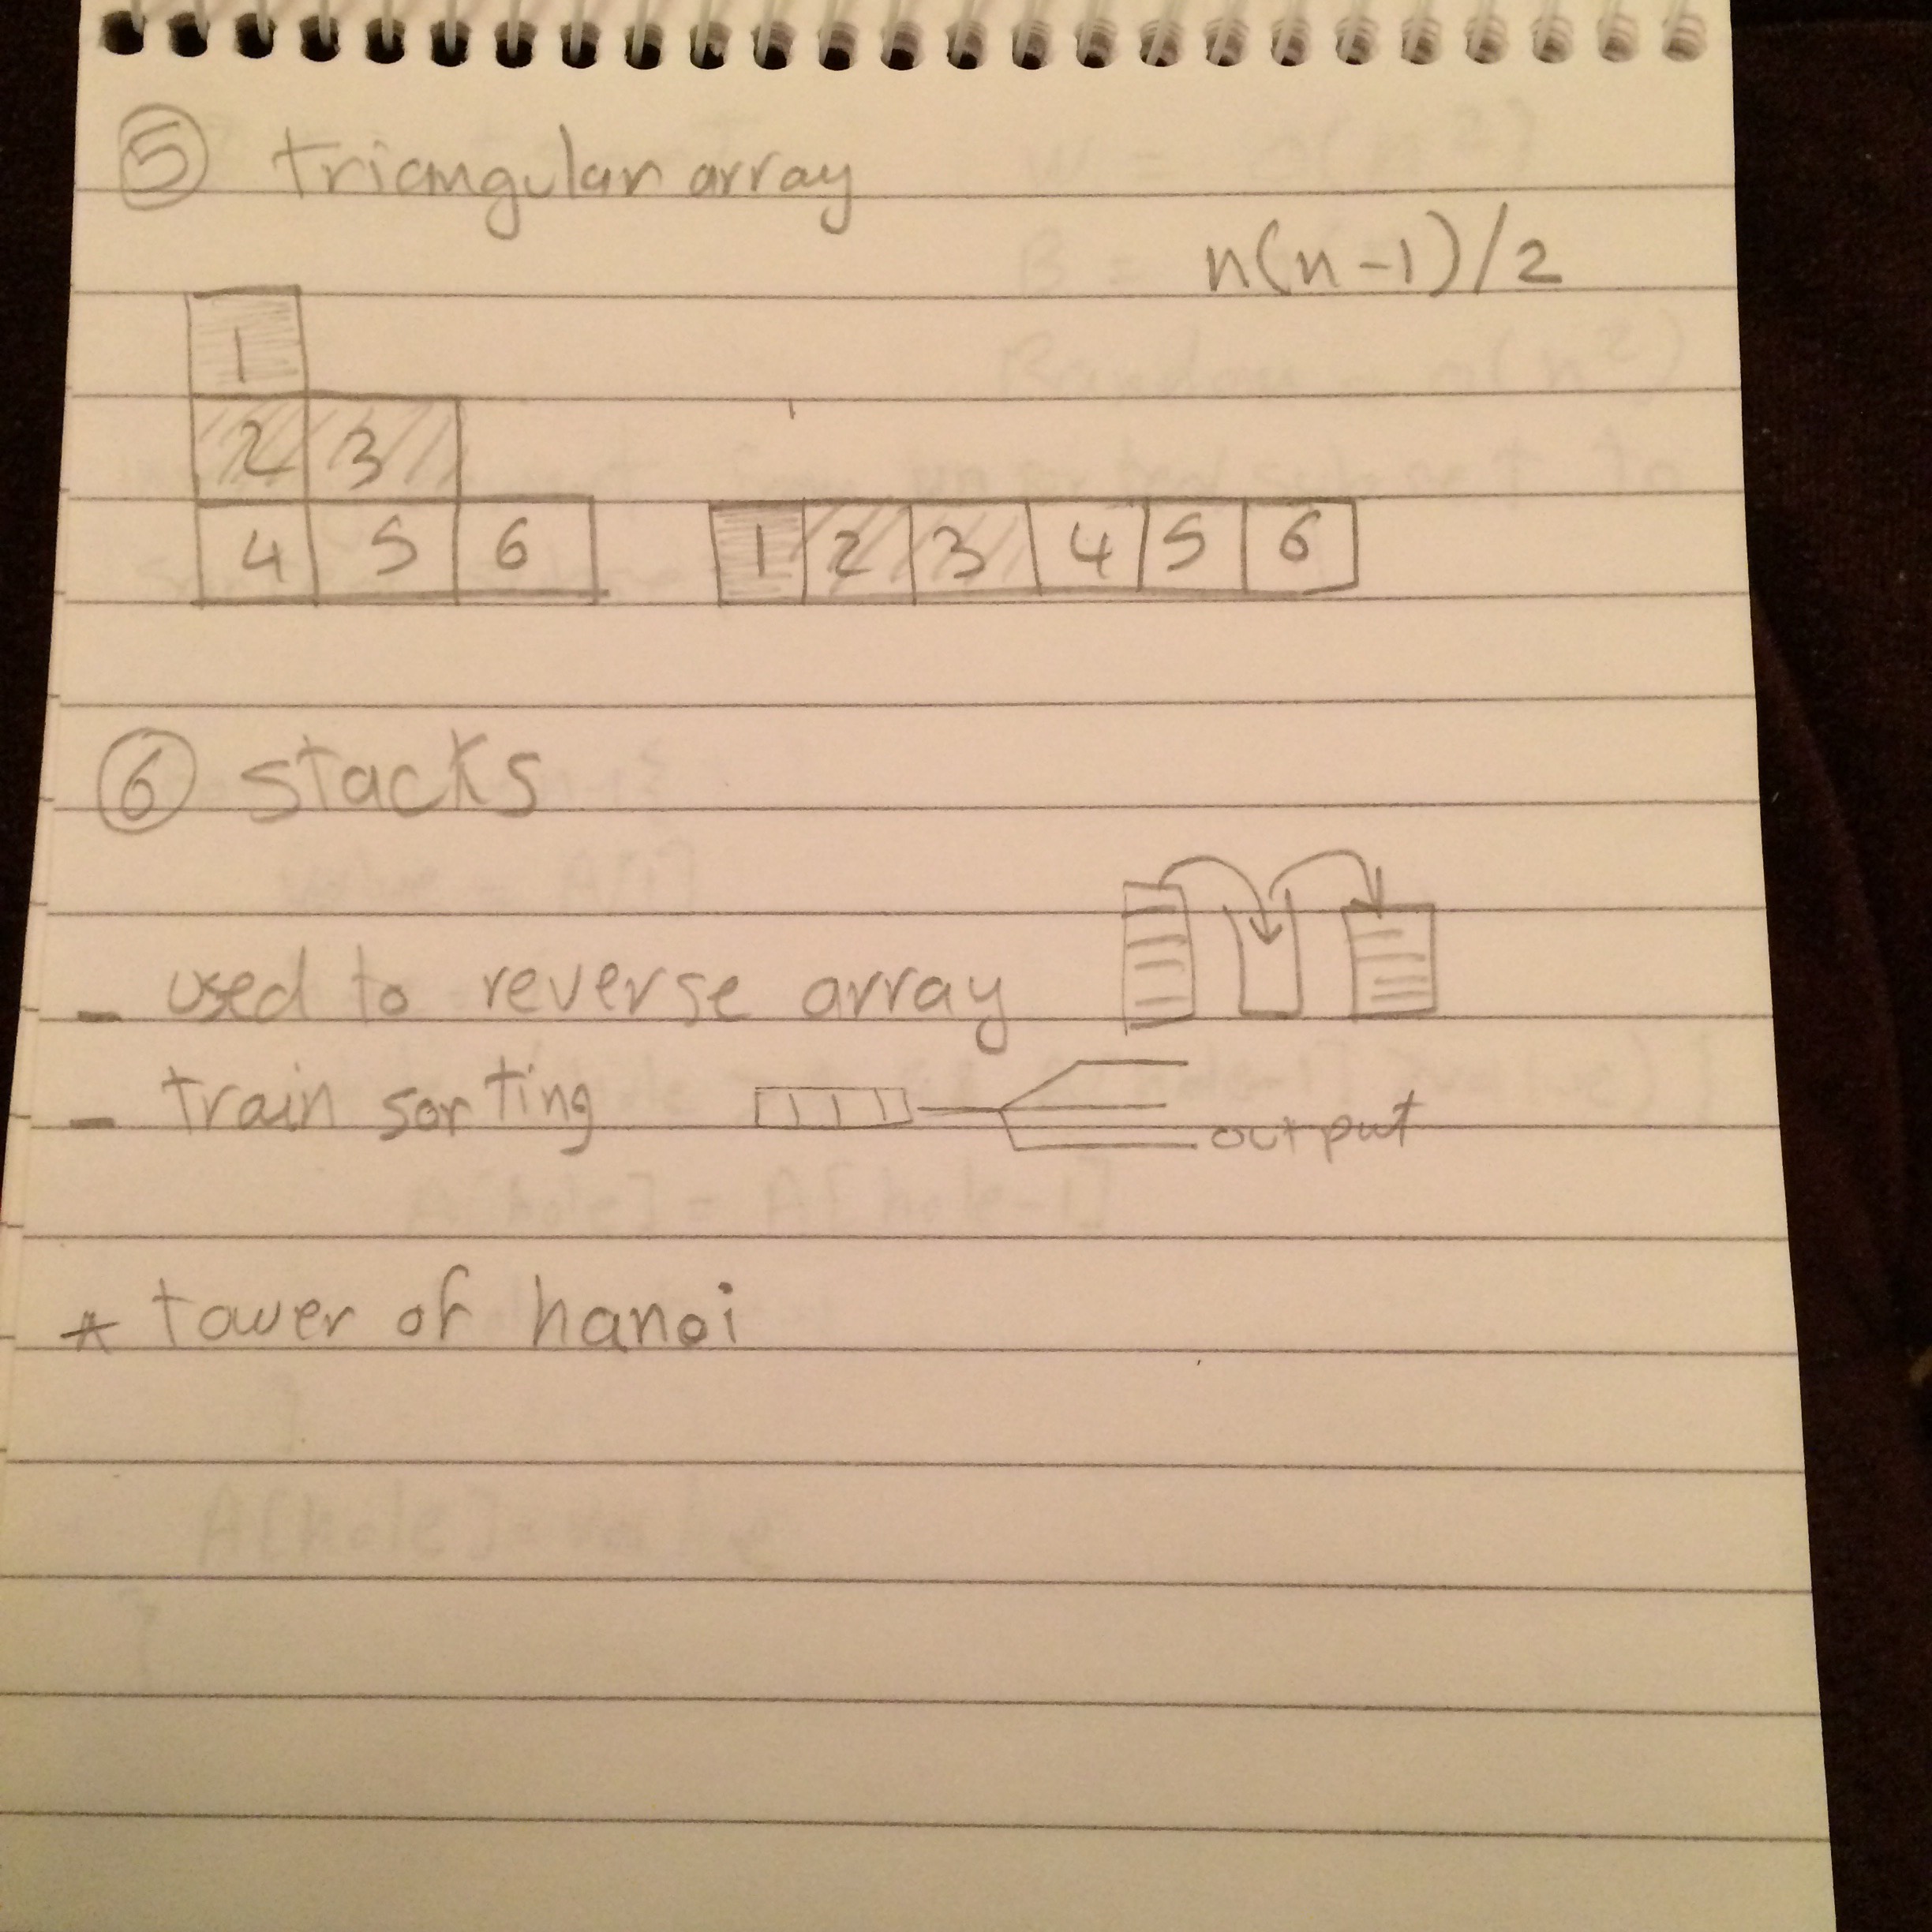 5 triangular array
n(n-1)/2
1
2 3
4 5 6
1 2 3 4 5 6
6 stacks
- used to reverse array
- train sorting output
* tower of hanoi